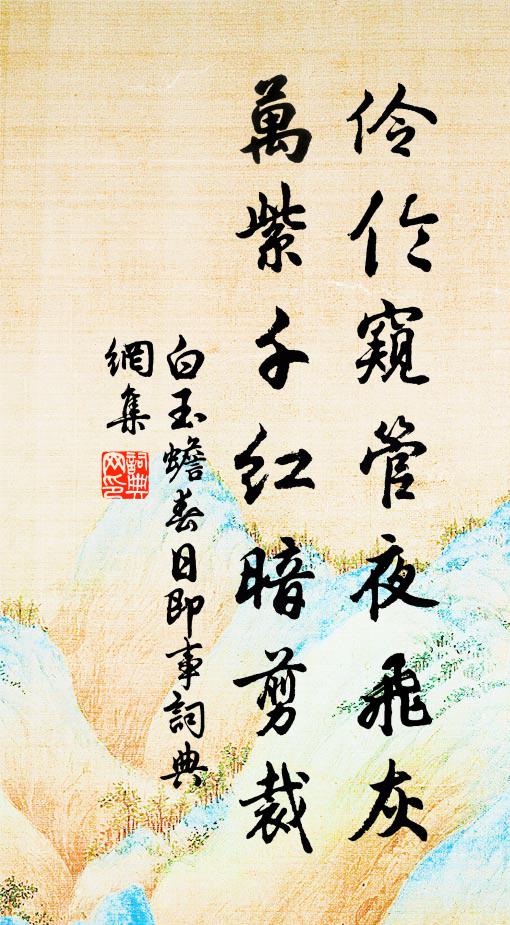 伶伦窺管夜飛灰
萬紫千红暗剪裁
白玉蟾春日即事詞典
網集
詞典網印